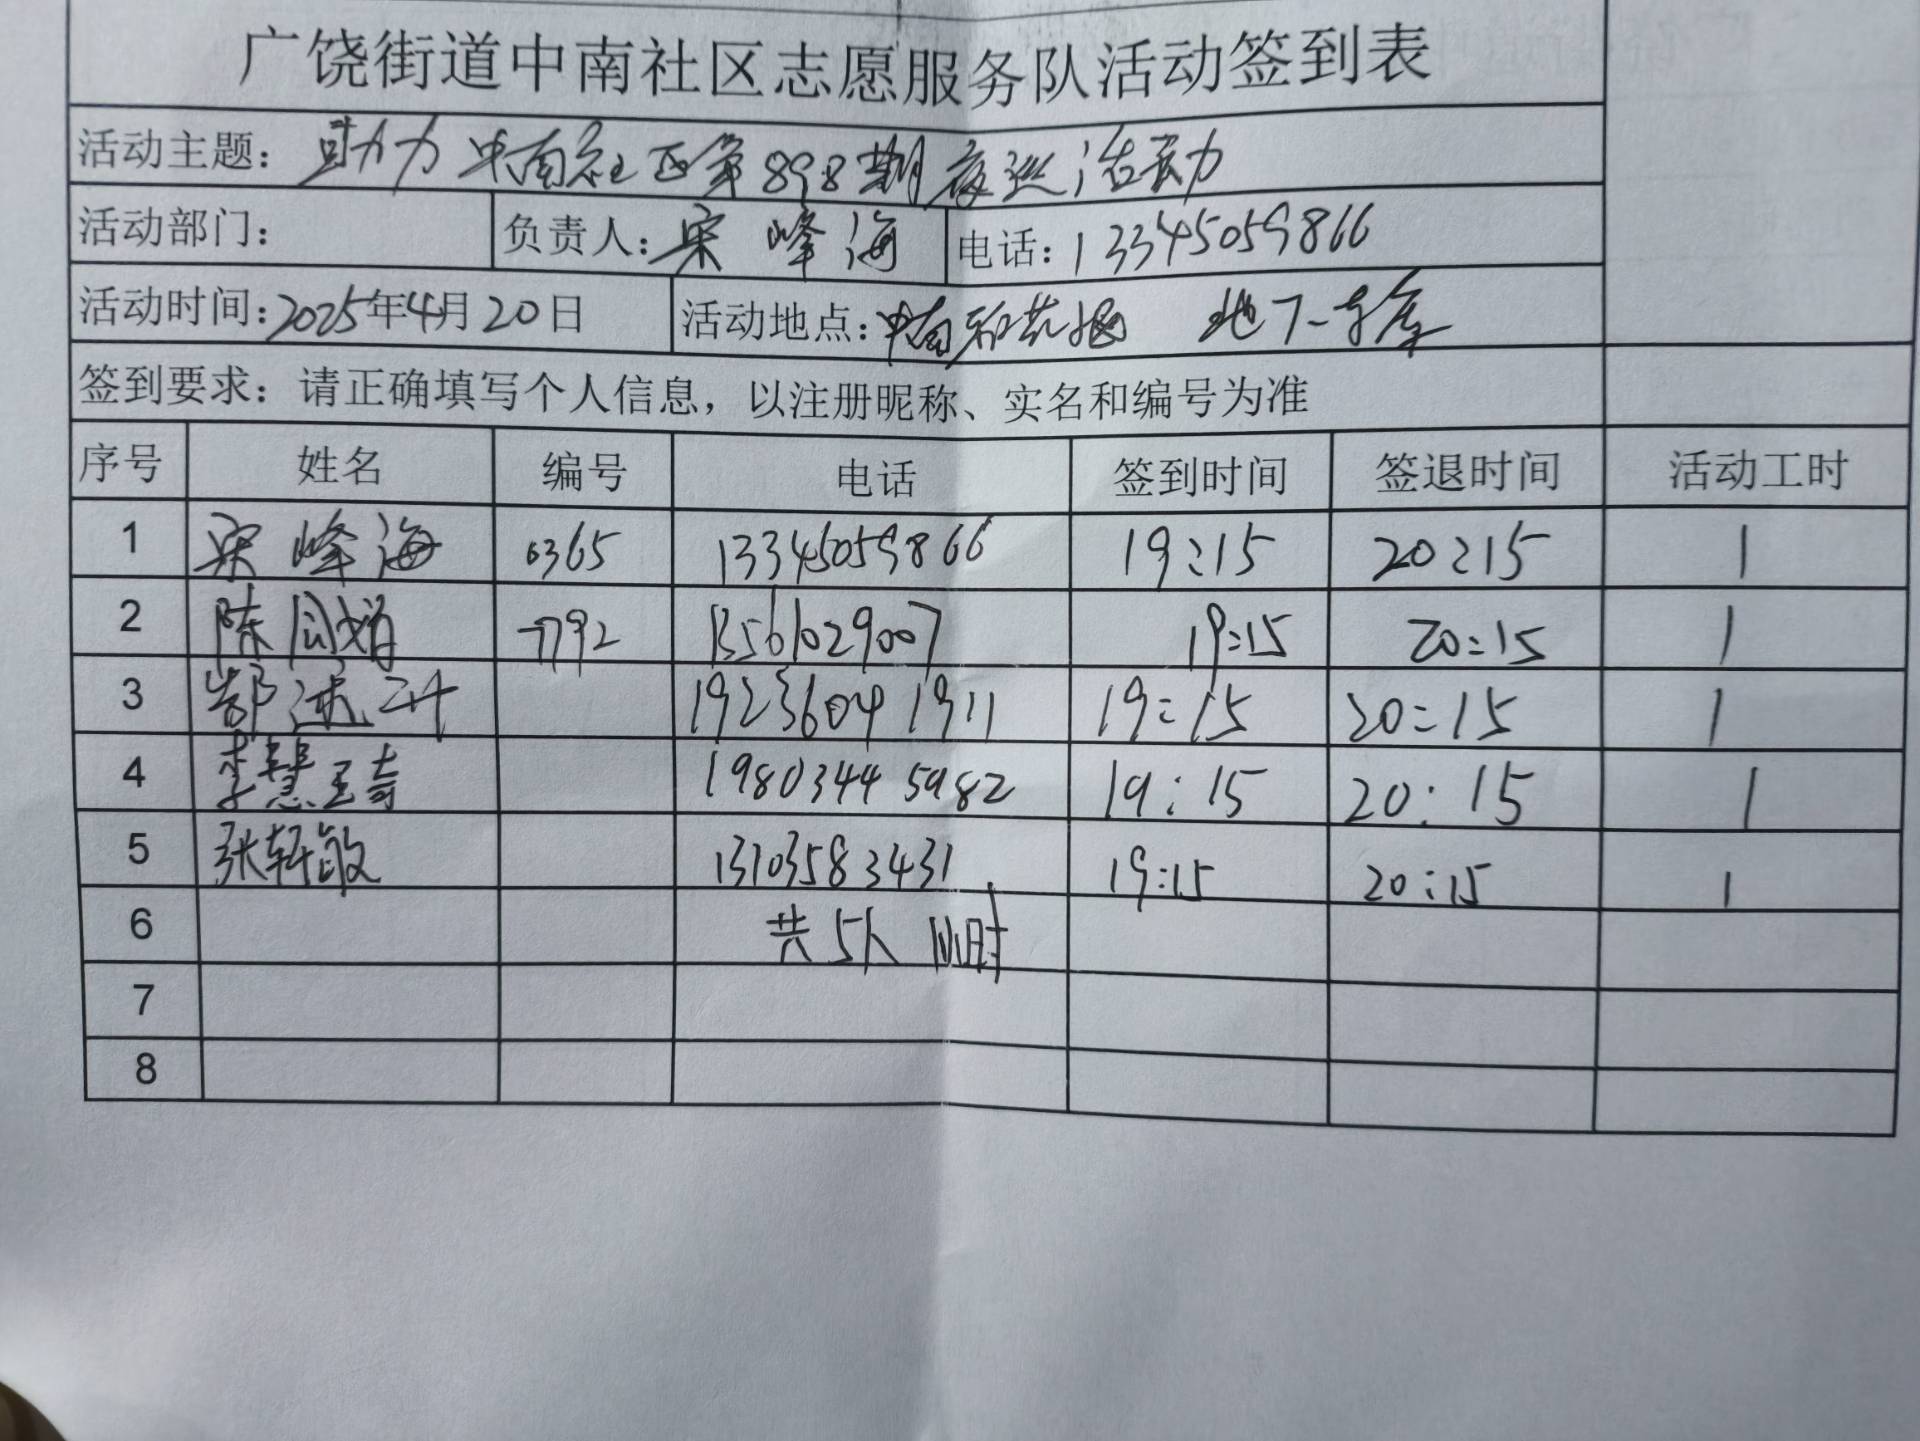 广饶街道中南社区志愿服务队活动签到表
活动主题：助力中南社区第898期夜巡活动
活动部门： 负责人：宋峰海 电话：13345059866
活动时间：2025年4月20日 活动地点：中南 地下车库
签到要求：请正确填写个人信息，以注册昵称、实名和编号为准
序号 姓名 编号 电话 签到时间 签退时间 活动工时
1 宋峰海 0365 13345059866 19:15 20:15 1
2 陈 7792 13561029007 19:15 20:15 1
3 19236041911 19:15 20:15 1
4 李慧琦 19803445982 19:15 20:15 1
5 张轩敏 13103583431 19:15 20:15 1
6 共5人 1小时
7
8